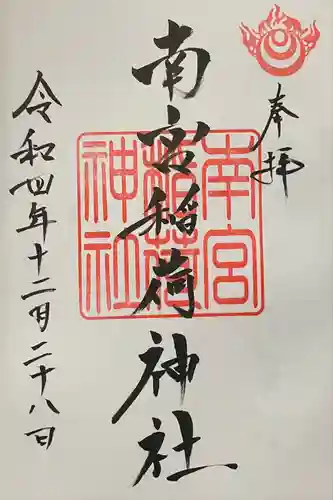 奉拝
南宮稲荷神社
南宮
稲荷
神社
令和四年十二月二十八日